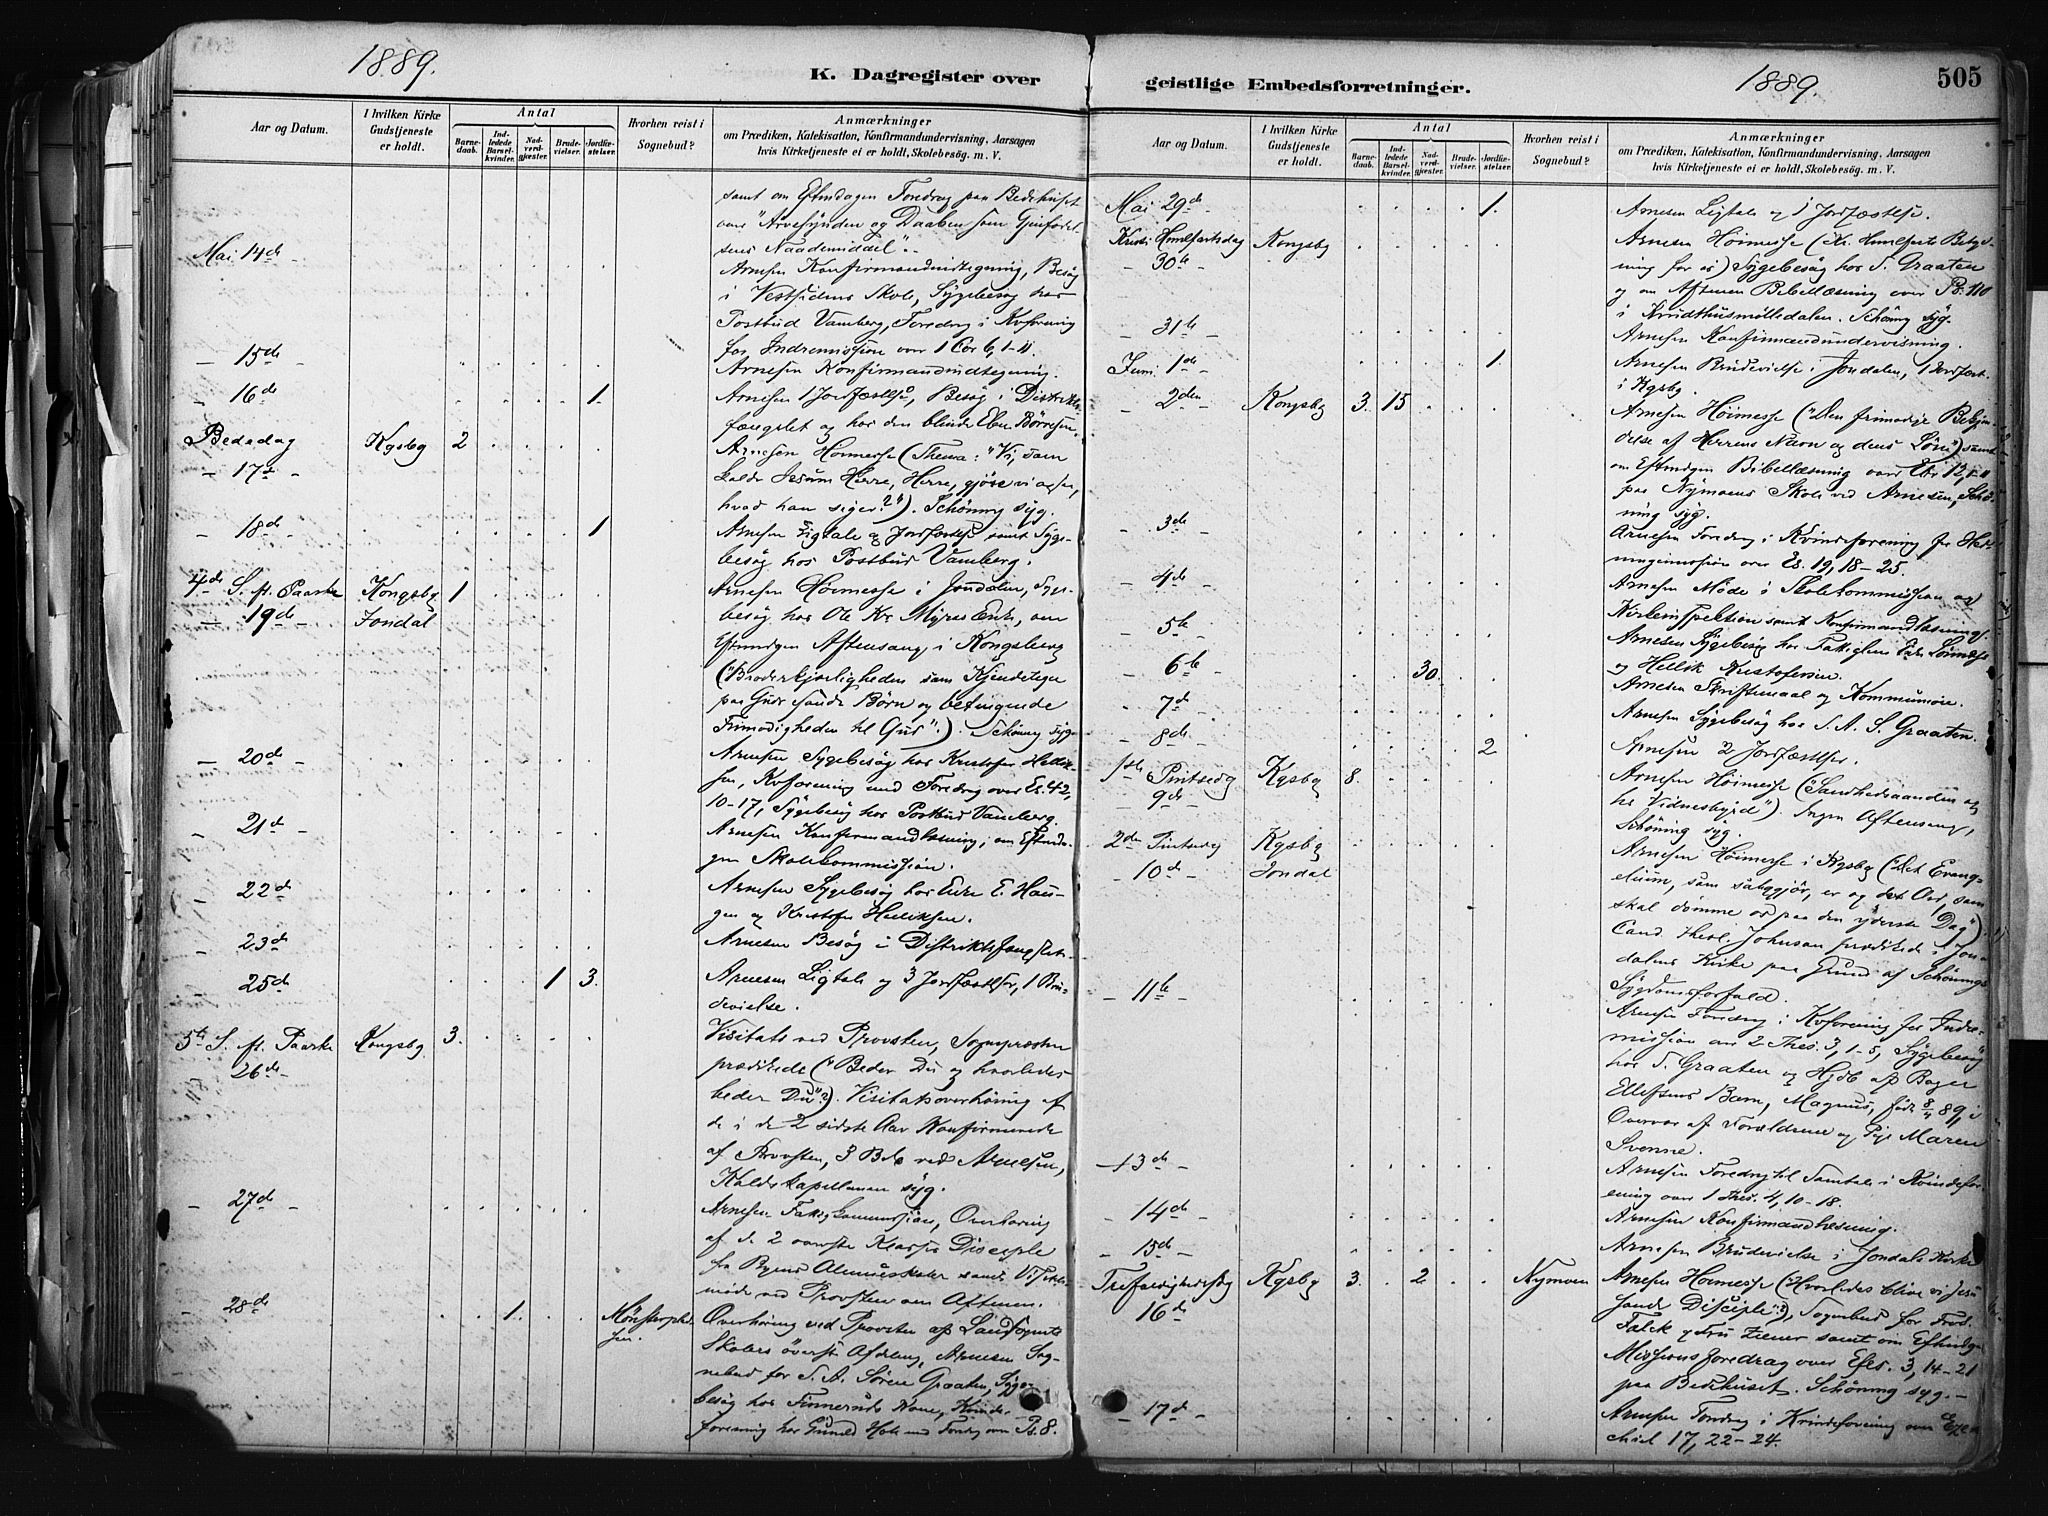 1889.
K. Dagregister over
Aar og Datum.
I hvilken Kirke Gudstjeneste er holdt.
Antal
Barnedaab.
Indledede Barselkvinder.
Nadverdgjæster.
Brudevielser.
Jordfæstelser.
Hvorhen reist i Sognebud?
Anmærkninger
om Prædiken, Katekisation, Konfirmandundervisning, Aarsagen
hvis Kirketjeneste ei er holdt, Skolebesøg. m. V.
samt om Eftmdagen Foredrag paa Bedehuset
over "Arvesynden og Daaben som Gjenfødel-
sens Naademiddel".
Mai 14de
Arnesen Konfirmandmdtegning, Besøg
i Vestsidens Skole, Sygebesøg hos
Postbud Vamberg, Foredrag i Kvforening
for Indremissionen over 1 Cor 6, 1-11.
- 15de
Arnesen Konfirmandmdtegning.
- 16de 1.
Arnesen 1 Jordfæstelse, Besøg i Distrikts-
fængslet og hos den blinde Eben Børresen.
Bededag Kgsbg 2
- 17de
Arnesen Høimesse (Thema: "Vi, som
kalde Jesum Herre, Herre, gjøre vi ogsaa,
hvad han siger?"). Schøning syg.
- 18de 1
Arnesen Ligtale og Jordfæstelse samt Syge-
besøg hos Postbud Vamberg.
4de S. ft. Paaske Kongsbg 1
- 19de - Jondal
Arnesen Høimesse i Jondalen, Syge-
besøg hos Ole Kr. Myras Enke, om
Eftmdgen Aftensang i Kongsberg
("Broderkjærligheden som Kjendetegn
paa Guds sande Børn og betingende
Frimodigheden til Gud".). Schøning syg.
- 20de -
Arnesen Sygebesøg hos Kristofer Hellik-
sen, Kvforening med Foredrag over Es. 42,
10-17, Sygebesøg hos Postbud Vamberg.
- 21de
Arnesen Konfirmandlæsning, om Eftmda-
gen Skolekommission.
- 22de
Arnesen Sygebesøg hos Enken E. Hau-
gen og Kristofer Helliksen.
- 23de
Arnesen Besøg i Distriktsfængslet.
25de 1 3.
Arnesen Ligtale og 3 Jordfæstelser, 1 Bru-
devielse.
5te S. ft. Paaske Kongsbg 3.
26de -
Visitats ved Provsten, Sognepræsten
prædikede ("Beder Du og hvorledes
beder Du"?). Visitatsoverhøring af
de i de 2 sidste Aar Konfirmerede
af Provsten, 3 Bdb ved Arnesen,
Kaldskapellanen syg.
- 27de -
Arnesen Fattigkommission, Overhøring
af de 2 øverste Klassers Disciple
fra Byens Almueskoler samt Visitats-
møde ved Provsten om Aftenen.
- 28de 1.
Overhøring ved Provsten af Landsognets
Skolers øverste Afdeling, Arnesen Sog-
nebud for S. A. Søren Graaten, Syge-
besøg hos Finneruds Kone, Kvinde-
forening hos Gunild Hols med Foredrag over Ps. 8.
geistlige Embedsforretninger.
1889.
505
Aar og Datum.
I hvilken Kirke Gudstjeneste er holdt.
Antal
Barnedaab.
Indledede Barselkvinder.
Nadverdgjæster.
Brudevielser.
Jordfæstelser.
Hvorhen reist i Sognebud?
Anmærkninger
om Prædiken, Katekisation, Konfirmandundervisning, Aarsagen
hvis Kirketjeneste ei er holdt, Skolebesøg. m. V.
Mai 29de 1.
Arnesen Ligtale og 1 Jordfæstelse.
Kristi Himlfartsdag Kongsbg
- 30te -
Arnesen Høimesse (Kr. Himlfarts Betyd-
ning for os) Sygebesøg hos S. Graaten
og om Aftenen Bibellæsning over Ps. 110
i Knudthusmølledalen. Schøning syg.
- 31te -
Arnesen Konfirmandundervisning.
Juni 1ste - 1.
Arnesen Brudevielse i Jondalen, 1 Jordfæst.
i Kgsbg.
- 2den - Kongsbg 3. 15
Arnesen Høimesse ("Den frimodige Bekjen-
delse af Herrens Navn og dens Løn") samt
om Eftmdgen Bibellæsning over Ebr 12, 1-11
paa Nymoens Skole ved Arnesen, Schø-
ning syg.
- 3de -
Arnesen Foredrag i Kvindeforening for Hed-
ningemission over Es. 19, 18-25.
- 4de -
Arnesen Møde i Skolekommission og
Kirkeinspektion samt Konfirmandlæsning.
- 5te -
Arnesen Sygebesøg hos Fattiglem
og Hellik Kristofersen.
- 6te - 30.
Arnesen Skriftemaal og Kommunion.
- 7de -
Arnesen Sygebesøg hos S. A. S. Graaten.
- 8de - 2
Arnesen 2 Jordfæstelser.
1ste Pintsedg Kgsbg 8.
9de -
Arnesen Høimesse ("Sandhedsaanden og
hs Vidnesbyrd"). Ingen Aftensang,
Schøning syg.
2den Pintsedg Kgsbg
- 10de - Jondal
Arnesen Høimesse i Kgsbg ("Det Evang-
elium, som saliggjør, er og det Ord, som
skal dømme os paa den yderste Dag").
Cand. theol. Johnson prædikede i Jon-
dalens Kirke paa Grund af Schønings
Sygdomsforfald.
- 11te -
Arnesen Foredrag i Kvforening for Indre-
mission over 2 Thes. 3, 1-5, Sygebesøg
hos S. Graaten og Hjdb af Bager
Ellefsens Barn, Magnus, født 8/4 89, i
Overvær af Forældrene og Pige Maren
Svenne.
- 13de -
Arnesen Foredrag til Samtale i Kvindefor-
ening over 1 Thes. 4, 10-18.
- 14de -
Arnesen Konfirmandlæsning.
- 15de -
Arnesen Brudevielse i Jondals Kirke
Trefoldighedsdg Kgsbg 3. 2 Nymoen
16de -
Arnesen Høimesse ("Hvorledes blive vi Jesu
sande Disciple"?), Sognebud for Frøk.
Falck og Fru Ziener samt om Eftmdgn
Missionsforedrag over Efes. 3, 14-21
paa Bedehuset. Schøning syg.
- 17de -
Arnesen Foredrag i Kvindeforening over Eze-
chiel 17, 22-24.